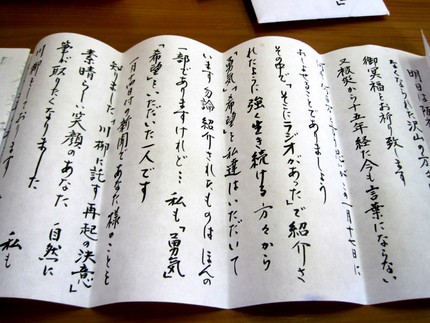 明日は阪神
なくなられた沢山の方々
御冥福をお祈り致します
又根災から十五年経た今も言葉にならない
一月十七日に
あることでありましょう
その中で「そこにラジオがあった」で紹介さ
れたように強く生き続ける方々から
「勇気」「希望」を私達はいただいて
います 勿論紹介されたものはほんの
一部でありますけれど… 私も「勇気」
「希望」をいただいた一人です
一月十日付の新聞であなた様のことを
知りました。川柳に託す「再起の決意」
素晴らしい笑顔のあなた、自然に
筆が取りたくなりました
川柳
私も